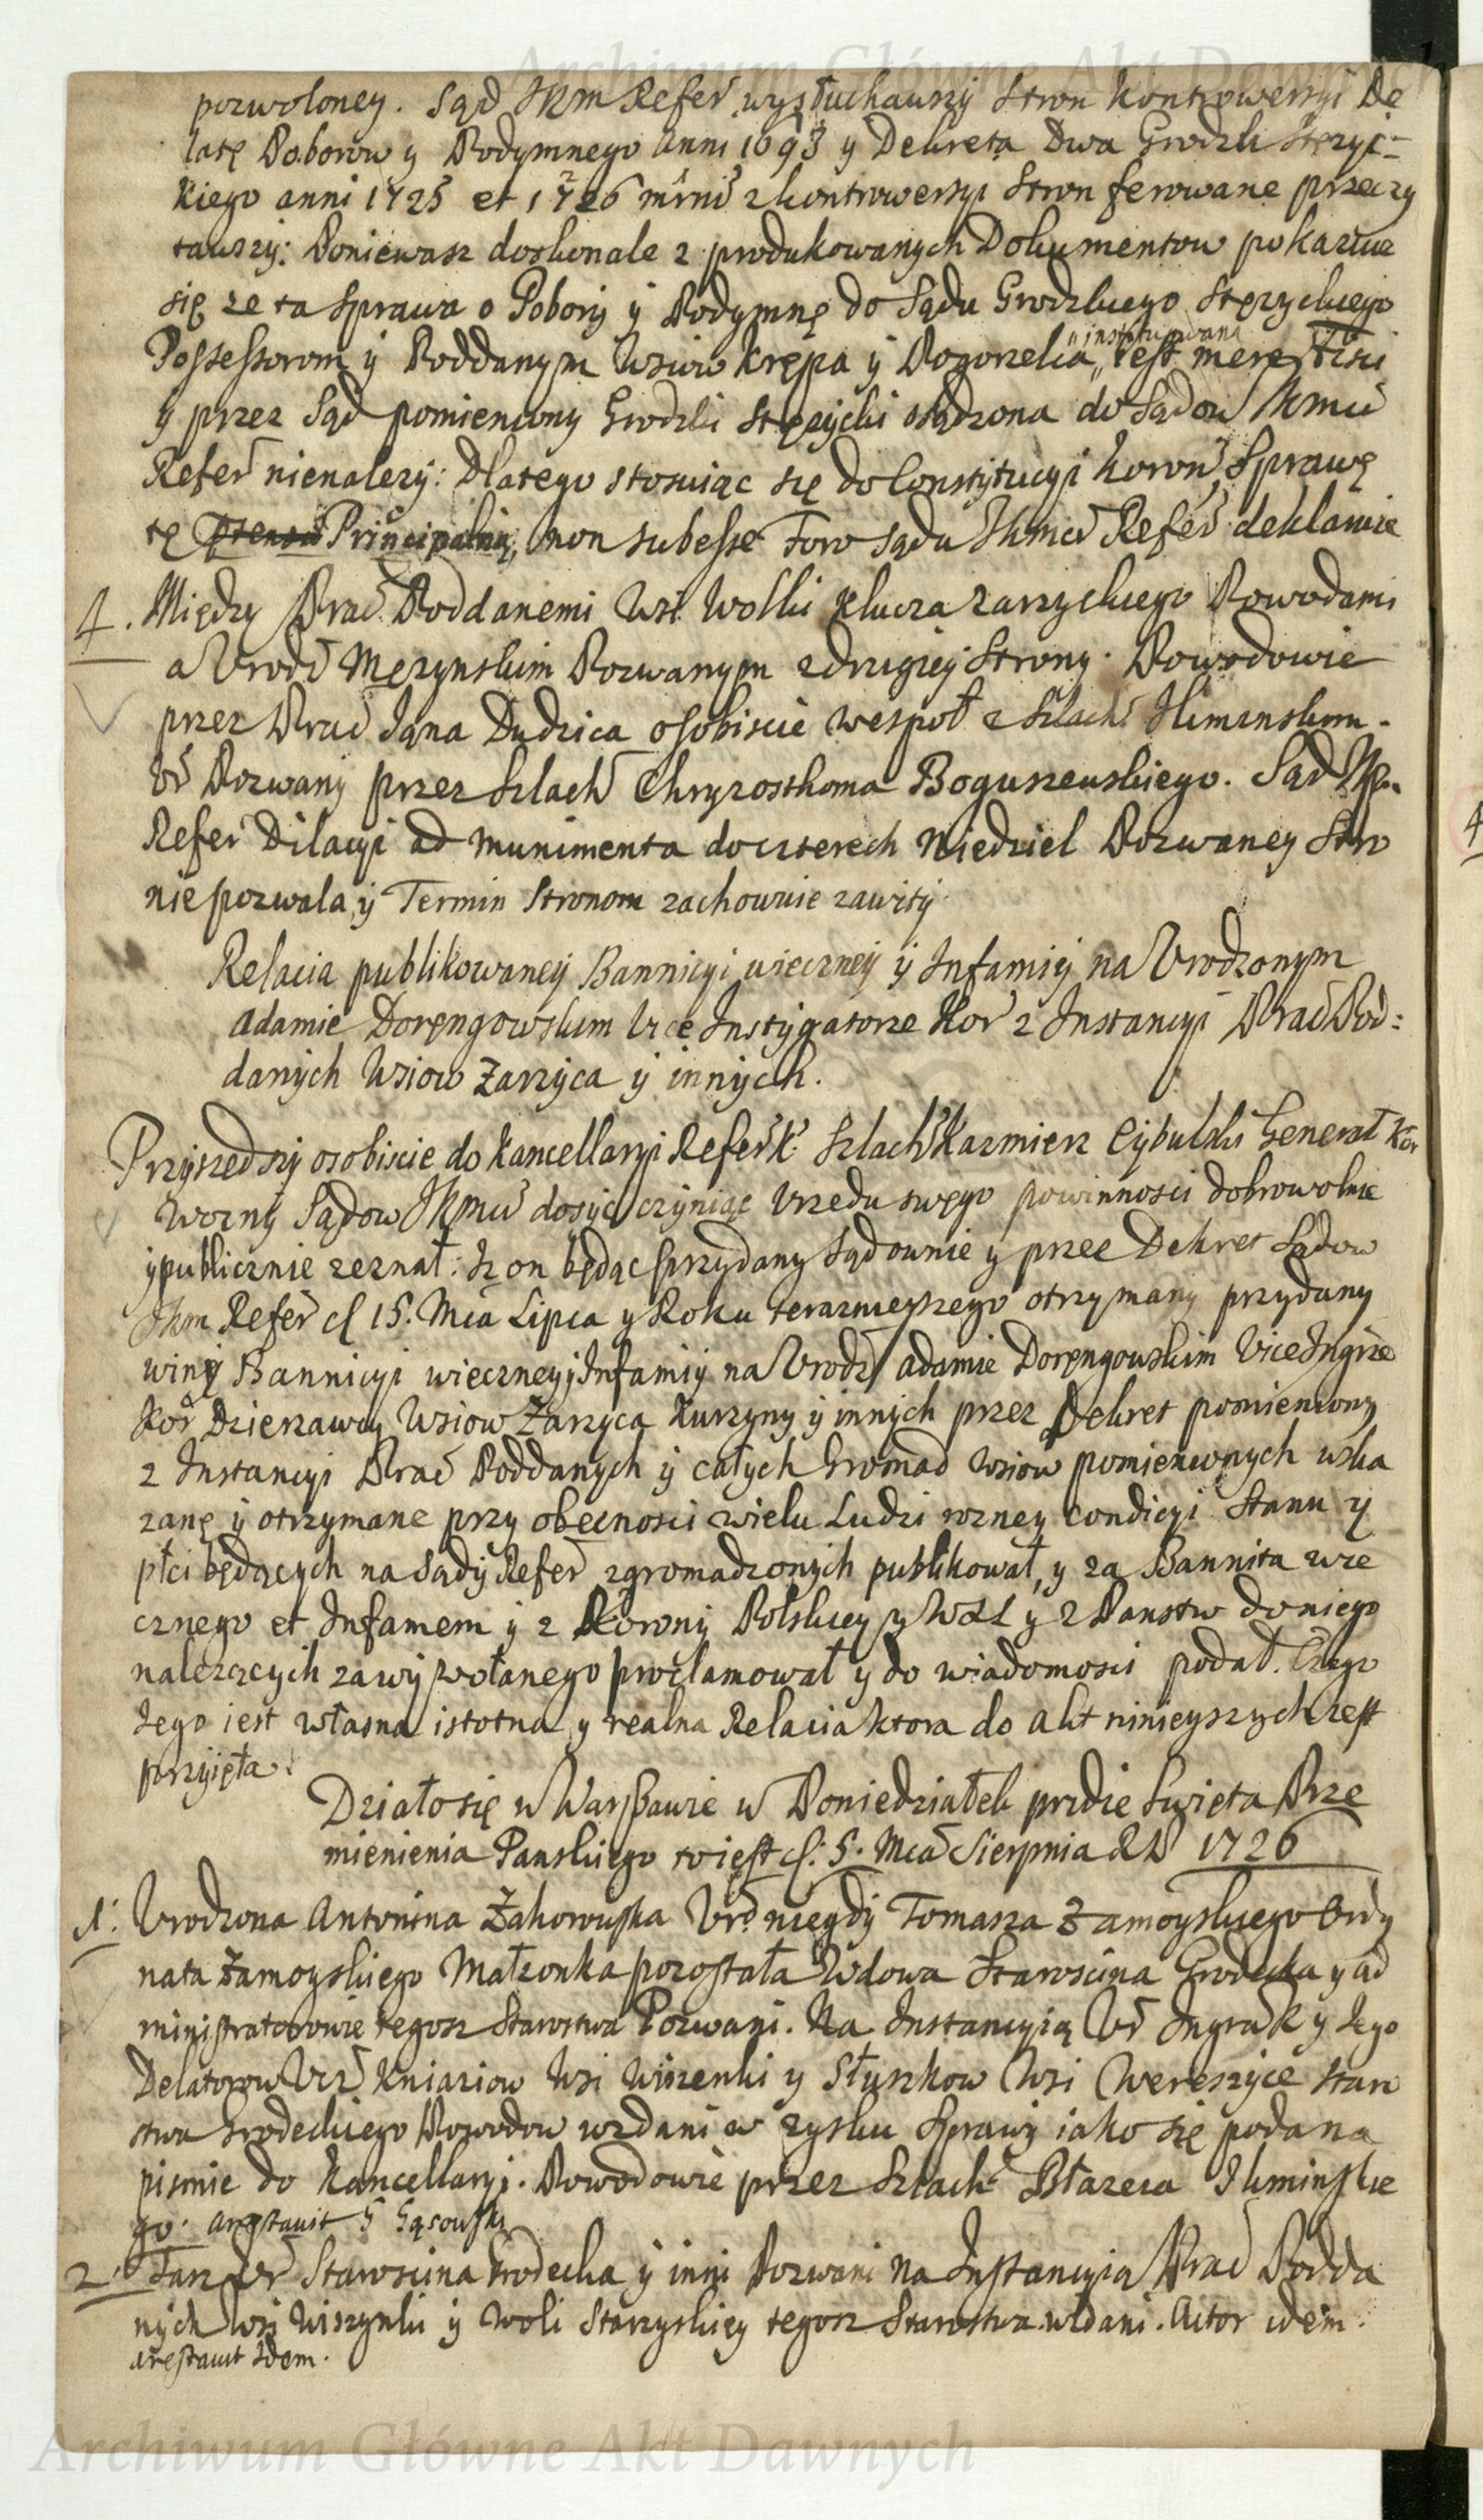 pozwoloney. Sąd JKM Refeř wysłuchawszy Stron kontrowersyi De
latę Poborow y Podymnego anni 1693 y Dekreta Dwa Grodzk Stężyc=
kiego anni 1725 et 1726 z kontrowersyi Stron ferowane przeczy
tawszy: Poniewasz doskonale z produkowanych Dokumentow pokazuie
się ze ta Sprawa o Pobory y Podymnę do Sądu Grodzkiego Stęzyckiego
Possessorom y Poddanym Wsiow Krępa y Pogorzelca instytuowana iest mere Fisci
y przez Sąd pomieniony Grodzki Stęzycki osądzona do Sądow JKMci
Refeř nienalezy: Dlatego stosuiąc się do Constytucyi Koron, Sprawę
tę Principalną, non subesse Foro Sądu JKMci Refeř deklaruie
4. Między Prac Poddanemi Wsi Wolki klucza Zarzyckiego Powodami
a Vrodz Męzynskim Pozwanym z drugiey Strony. Powodowie
przez Prac Jana Dudzica osobiscie wespoł z Szlach Ilminskim.
Vr Pozwany przez Szlach Chryzosthoma Boguszewskiego. Sąd JKM
Refeř Dilacyi ad munimenta do czterech Niedziel Pozwaney Stro
nie pozwala, y Termin Stronom zachowuie zawity
Relacia publikowaney Bannicyi wieczney y Infamiy na Vrodzonym
Adamie Doręngowskim Vice Instygatorze Kor z Instancyi Prac Pod=
danych Wsiow Zarzyca y innych.
Przyszedszy osobiscie do Kancellaryi Refeř K Szlach Kazmierz Cybulski Generał Kor
Wozny Sądow JKMci dosyc czyniąc Vrzedu swego powinnosci dobrowolnie
y publicznie zeznał: Iz on będąc przydany Sądownie y przez Dekret Sądow
JKM Refeř d 15. Mca Lipca y Roku terazniejszego otrzymany przydany
winę Bannicyi wieczney y Infamiy na Vrodz Adamie Doręngowskim Vice Ingrze
Kor Dzierzawcy Wsiow Zarzyca Kurzyny y innych przez Dekret pomieniony
z Instancyi Prac Poddanych y całych Gromad Wsiow pomienionych wska
zanę y otrzymane przy obecnosci wielu Ludzi rozney condicyi Stanu y
płci będących na Sądy Refeř zgromadzonych publikował, y za Bannita wie
cznego et Infamem y z Korony Polskiey y WXL y z Panstw do niego
nalezących zawywołanego proclamował y do wiadomosci podał. Czego
Jego iest własna istotna y realna Relacia ktora do akt ninieyszych iest
przyięta.
Działo się w Warszawie w Poniedziałek pridie Swięta Prze
mienienia Panskiego to iest d: 5. Mca Sierpnia RP 1726
1. Vrodzona Antonina Zahorowska Vr niegdy Tomasza Zamoyskiego Ordy
nata Zamoyskiego Małzonka pozostała Wdowa Staroscina Grodecka y ad
ministratorowie tegosz Starostwa Pozwani. Na Instancyią Vr Ingra K y Jego
Delatorow Vcz Kniaziow Wsi Wiszenki y Słuzkow Wsi Wereszyce Staro
stwa Grodeckiego Powodow wzdani w zysku Sprawy iako się poda na
pismie do Kancellaryi. Powodowie przez Szlach Błazeia Ilminskie
go. arestavit G Gąsowski
2. Tasz Vr Staroscina Grodecka y inni Pozwani Na Instancyią Prac Podda
nych Wsi Wiszynki y Woli Starzyskiey tegosz Starostwa wzdani. Actor idem.
arestavit Idem.
Archiwum Główne Akt Dawnych